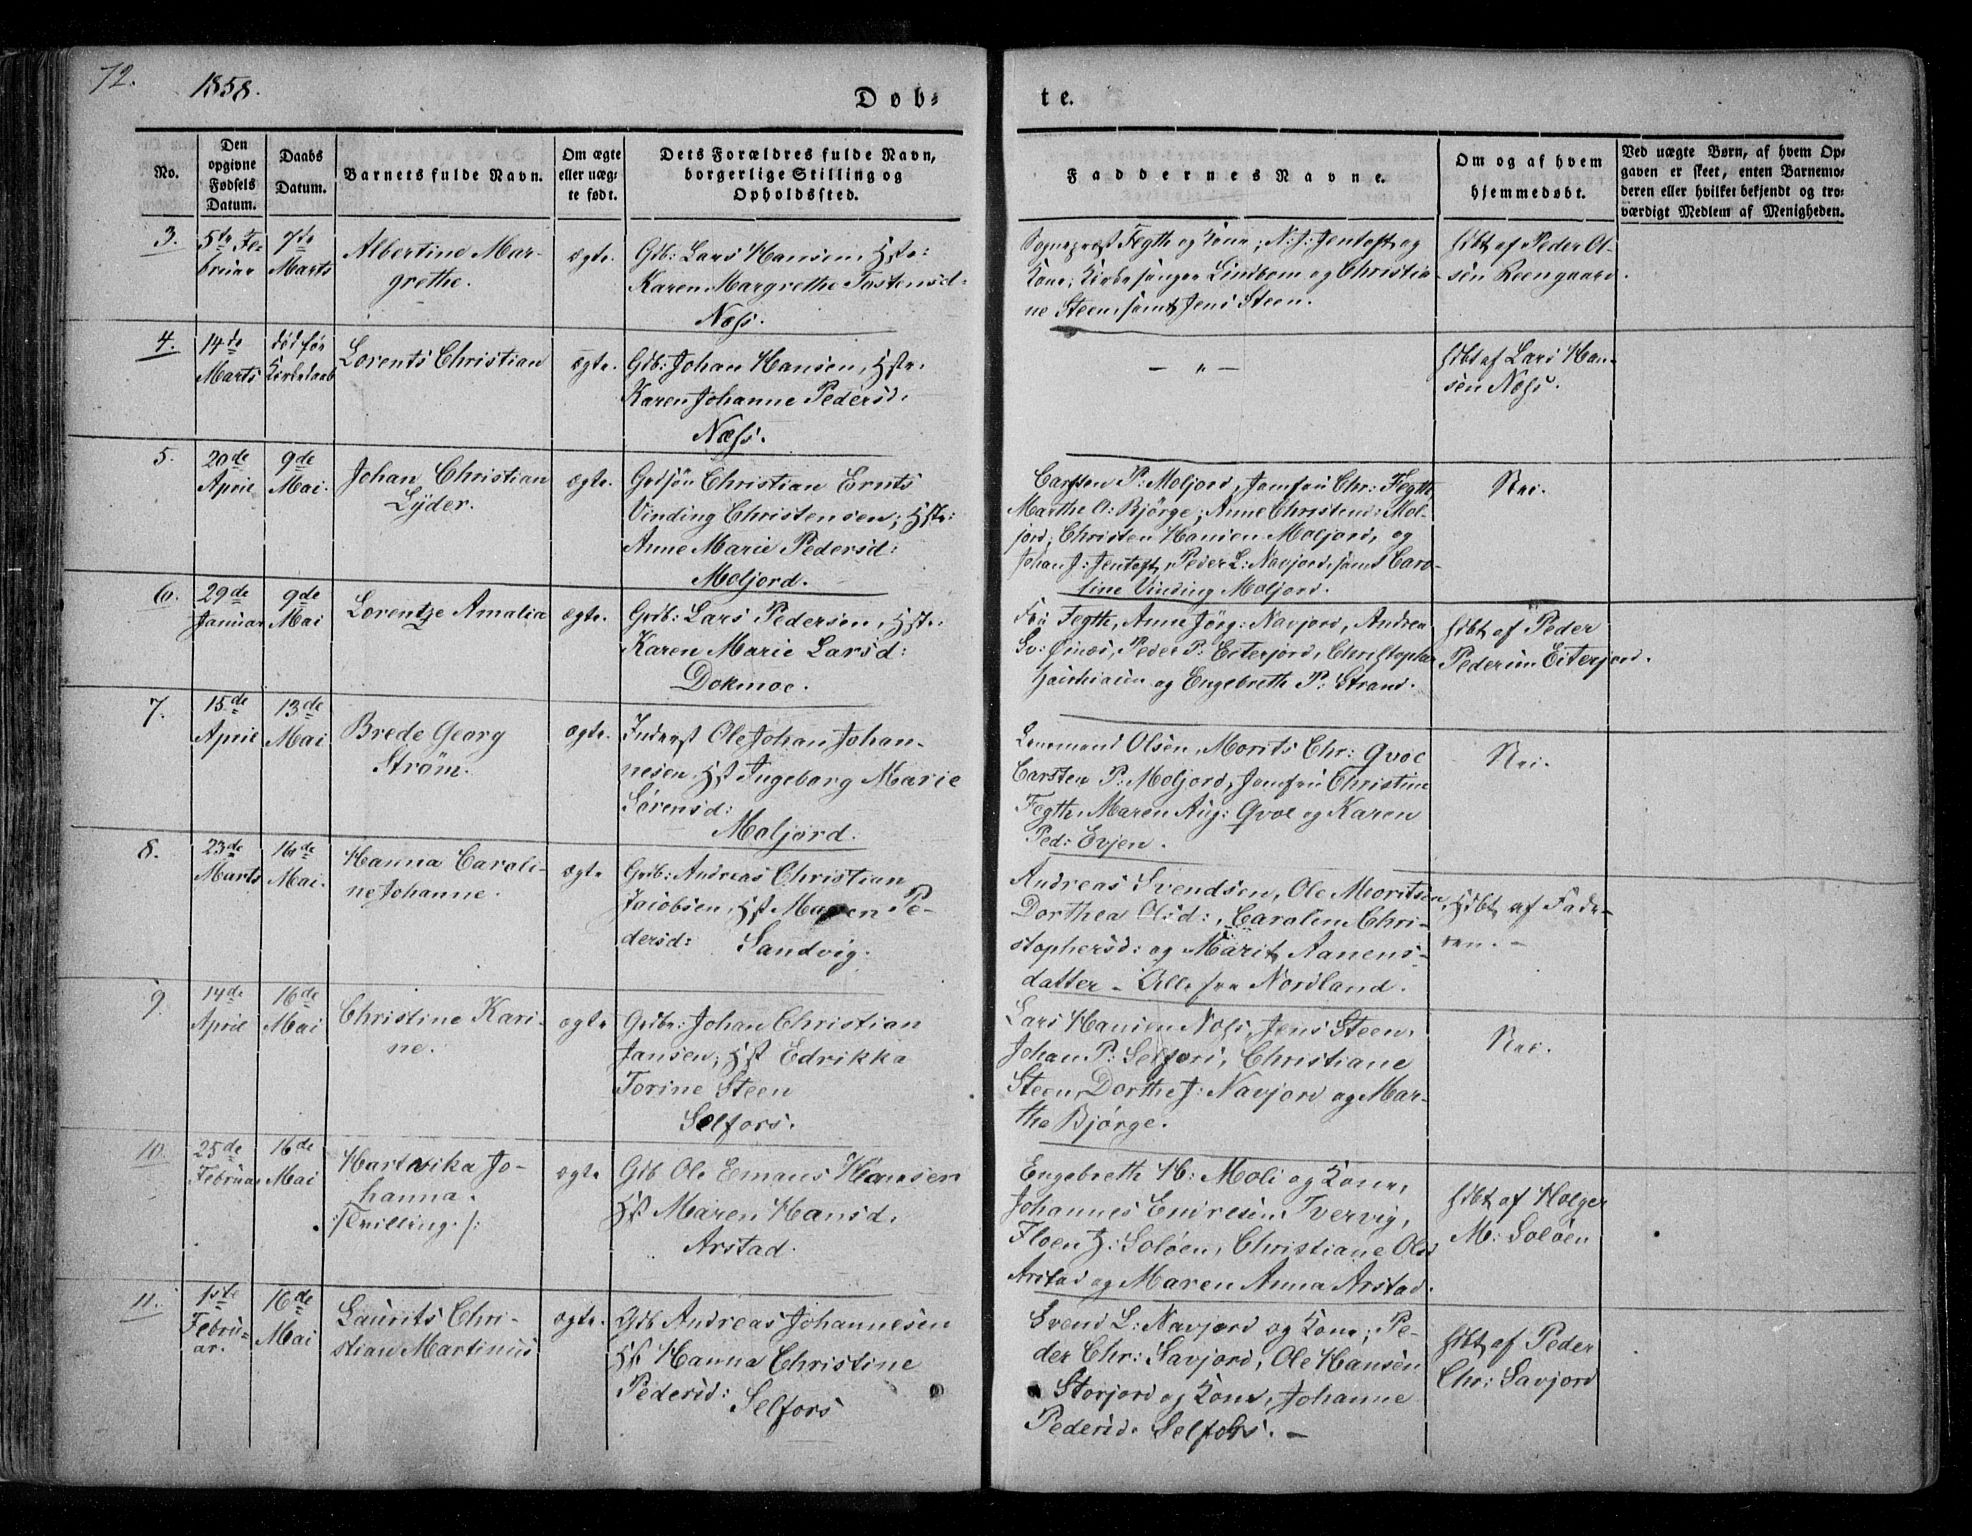 72.
1858.
Døb-
te.
No.
Den opgivne Fødsels Datum.
Daabs Datum.
Barnets fulde Navn.
Om ægte eller uæg-te født.
Dets Forældres fulde Navn, borgerlige Stilling og Opholdssted.
Faddernes Navne.
Om og af hvem hjemmedøbt.
Ved uægte Børn, af hvem Op-gaven er skeet, enten Barnemo-deren eller hvilket bekjendt og tro-værdigt Medlem af Menigheden.
3.
5te Fe-
bruar
7de
Marts
Albertine Mar-
grethe.
ægte.
Gdb: Lars Hansen, Hstr:
Karen Margrethe Tostensd.
Næss.
Sognepræst Fegth og Kone; N: J: Jentoft og
Kone; Kirkesanger Lindbom og Christia-
ne Steen, samt Jens Steen.
Hdbt af Peder Ol-
sen Reengaard.
4.
14de
Marts
død før
Kirkedaab
Lorents Christian
ægte.
Gdb: Johan Hansen, Hstr.
Karen Johanne Pedersd.
Næss.
— " —
Hdbt af Lars Han-
sen Næss.
5.
20de
April
9de
Mai.
Johan Christian
Lyder.
ægte.
Christian Ernts
Vinding Christensen; Hstr:
Anne Marie Pedersd:
Moljord.
Carsten P: Moljord, Jomfru Chr: Fegth,
Marthe O: Bjørge; Anne Christens: Mol-
jord; Christen Hansen Moljord, og
Johan J: Jentoft, Peder L: Navjord, samt Caro-
line Vinding Moljord.
Nei.
6.
29de
Januar
9de
Mai
Lorentze Amalia
ægte.
Grdb: Lars Pedersen, Hstr.
Karen Marie Larsd:
Dokmoe.
Fru Fegth, Anne Jørg: Navjord, Andrea
Sv: Øines, Peder P: Eiterjord, Christopher
og Engebreth P: Strand.
Hdbt af Peder
Pedersen Eiterjord.
7.
15de
April
13de
Mai
Brede Georg
Strøm.
ægte.
Inderst Ole Johan Johan-
nesen, Hst Ingeborg Marie
Sørensd:
Moljord.
Lensmand Olsen, Morits Chr: Qvoe
Carsten P: Moljord, Jomfru Christine
Fegth, Maren Aug: Qvoe og Karen
Ped: Evjen.
Nei.
8.
23de
Marts
16de
Mai.
Hanna Caroli-
ne Johanne.
ægte
Grdb: Andreas Christian
Jacobsen, Hst Maren Pe-
dersd: Sandvig.
Andreas Svendsen, Ole Moritsen,
Dorthea Olsd:, Carolin Chri-
stophersd: og Marit Aanens-
datter - Alle fra Nordland.
Hdbt af Fade-
ren. -
9.
14de
April
16de
Mai
Christine Kari-
ne.
ægte
Grdbr: Johan Christian
Jansen; Hst Edrikka
Torine Steen
Selfors.
Lars Hansen Næss, Jens Steen,
Johan P: Selfors, Christiane
Steen, Dorthe J: Navjord og Mar-
tha Bjørge.
Nei.
10.
25de
Februar
16de
Mai
Hartvika Jo-
hanna.
:/Tvilling./:
ægte
Gdb Ole Emans Hansen
Hst Maren Hansd.
Arstad.
Engebreth H: Moli og Kone,
Johannes Endresen Tvervig,
Floentz: Soløen, Christiane Ols:
Arstad og Maren Anna Arstad.
Hdbt af Holger
M: Soløen
11.
1ste
Febru-
ar.
16de
Mai
Laurits Chri-
stian Martinus
ægte.
Gdb Andreas Johannesen
Hst Hanna Christine
Pedersd: Selfors
Svend L: Navjord og Kone; Pe-
der Chr: Savjord, Ole Hansen
Storjord og Kone, Johanne
Pedersd. Selfors. -
Hdbt af Peder
Chr: Savjord